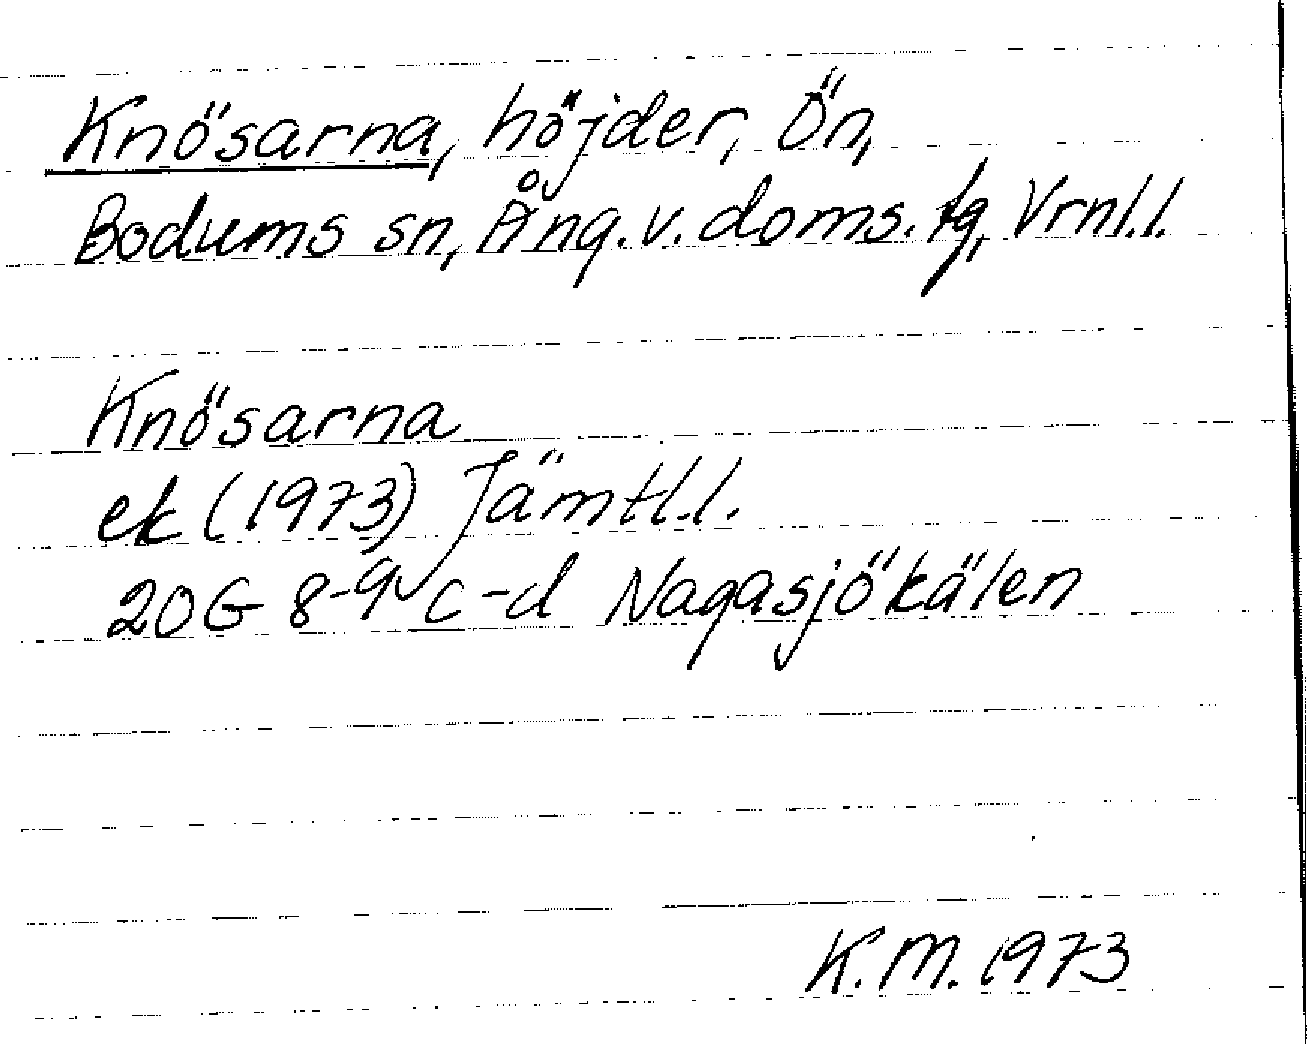 Knösarna, höjder, Ön,
Bodums sn, Ång.v.doms.tg, Vrnl.l.
Knösarna
ek (1973) Jämtl.l.
20G 8-9 c-d Nagasjökälen
K.M. 1973